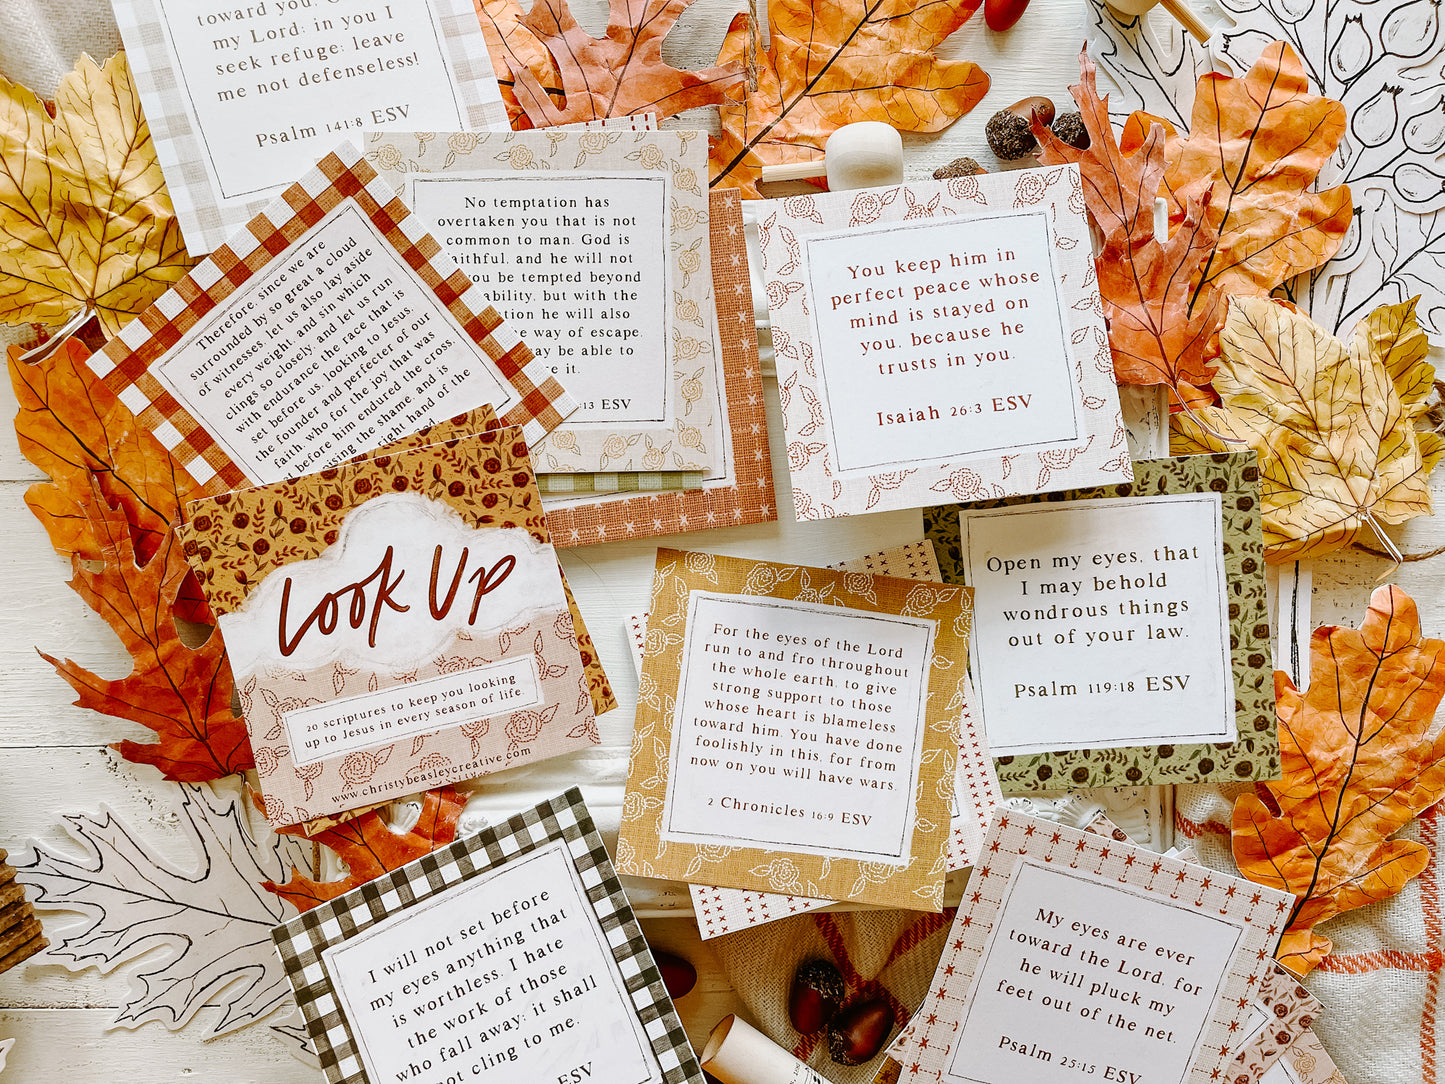 toward you,
my Lord; in you I
seek refuge; leave
me not defenseless!
Psalm 141:8 ESV
No temptation has
overtaken you that is not
common to man. God is
faithful, and he will not
you be tempted beyond
ability, but with the
he will also
way of escape,
may be able to
it.
13 ESV
You keep him in
perfect peace whose
mind is stayed on
you, because he
trusts in you.
Isaiah 26:3 ESV
Therefore, since we are
surrounded by so great a cloud
of witnesses, let us also lay aside
every weight, and sin which
clings so closely, and let us run
with endurance the race that is
set before us, looking to Jesus,
the founder and perfecter of our
faith who for the joy that was
before him endured the cross,
the shame, and is
right hand of the
Look Up
20 scriptures to keep you looking
up to Jesus in every season of life.
www.christybeasleycreative.com
For the eyes of the Lord
run to and fro throughout
the whole earth, to give
strong support to those
whose heart is blameless
toward him. You have done
foolishly in this, for from
now on you will have wars.
2 Chronicles 16:9 ESV
Open my eyes, that
I may behold
wondrous things
out of your law.
Psalm 119:18 ESV
I will not set before
my eyes anything that
is worthless. I hate
the work of those
who fall away; it shall
not cling to me.
ESV
My eyes are ever
toward the Lord, for
he will pluck my
feet out of the net.
Psalm 25:15 ESV